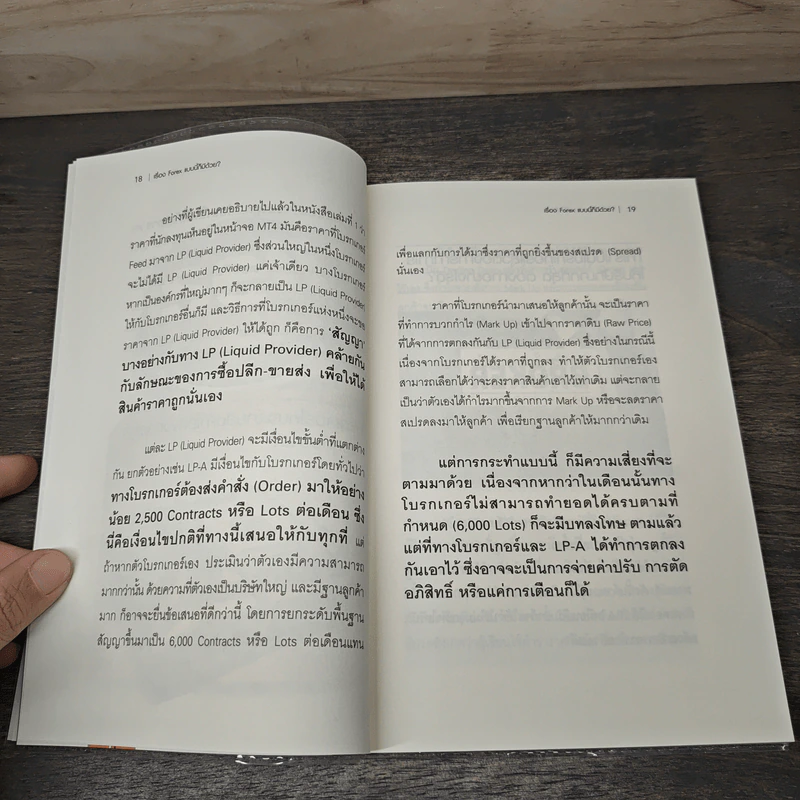 18 | เรื่อง Forex แบบนี้ก็มีด้วย?
อย่างที่ผู้เขียนเคยอธิบายไปแล้วในหนังสือเล่มที่ 1 ว่า
ราคาที่นักลงทุนเห็นอยู่ในหน้าจอ MT4 มันคือราคาที่โบรกเกอร์
Feed มาจาก LP (Liquid Provider) ซึ่งส่วนใหญ่ในหนึ่งโบรกเกอร์
จะไม่ได้มี LP (Liquid Provider) แค่เจ้าเดียว บางโบรกเกอร์
หากเป็นองค์กรที่ใหญ่มากๆ ก็จะกลายเป็น LP (Liquid Provider)
ให้กับโบรกเกอร์อื่นก็มี และวิธีการที่โบรกเกอร์แห่งหนึ่งจะขอ
ราคาจาก LP (Liquid Provider) ให้ได้ถูก ก็คือการ 'สัญญา'
บางอย่างกับทาง LP (Liquid Provider) คล้ายกัน
กับลักษณะของการซื้อปลีก-ขายส่ง เพื่อให้ได้
สินค้าราคาถูกนั่นเอง
แต่ละ LP (Liquid Provider) จะมีเงื่อนไขขั้นต่ำที่แตกต่าง
กัน ยกตัวอย่างเช่น LP-A มีเงื่อนไขกับโบรกเกอร์โดยทั่วไปว่า
ทางโบรกเกอร์ต้องส่งคำสั่ง (Order) มาให้อย่าง
น้อย 2,500 Contracts หรือ Lots ต่อเดือน ซึ่ง
นี่คือเงื่อนไขปกติที่ทางนี้เสนอให้กับทุกที่ แต่
ถ้าหากตัวโบรกเกอร์เอง ประเมินว่าตัวเองมีความสามารถ
มากกว่านั้น ด้วยความที่ตัวเองเป็นบริษัทใหญ่ และมีฐานลูกค้า
มาก ก็อาจจะยื่นข้อเสนอที่ดีกว่านี้ โดยการยกระดับพื้นฐาน
สัญญาขึ้นมาเป็น 6,000 Contracts หรือ Lots ต่อเดือนแทน
เรื่อง Forex แบบนี้ก็มีด้วย? | 19
เพื่อแลกกับการได้มาซึ่งราคาที่ถูกยิ่งขึ้นของสเปรด (Spread)
นั่นเอง
ราคาที่โบรกเกอร์นำมาเสนอให้ลูกค้านั้น จะเป็นราคา
ที่ทำการบวกกำไร (Mark Up) เข้าไปจากราคาดิบ (Raw Price)
ที่ได้จากการตกลงกันกับ LP (Liquid Provider) ซึ่งอย่างในกรณีนี้
เนื่องจากโบรกเกอร์ได้ราคาที่ถูกลง ทำให้ตัวโบรกเกอร์เอง
สามารถเลือกได้ว่าจะคงราคาสินค้าเอาไว้เท่าเดิม แต่จะกลาย
เป็นว่าตัวเองได้กำไรมากขึ้นจากการ Mark Up หรือจะลดราคา
สเปรดลงมาให้ลูกค้า เพื่อเรียกฐานลูกค้าให้มากกว่าเดิม
แต่การกระทำแบบนี้ ก็มีความเสี่ยงที่จะ
ตามมาด้วย เนื่องจากหากว่าในเดือนนั้นทาง
โบรกเกอร์ไม่สามารถทำยอดได้ครบตามที่
กำหนด (6,000 Lots) ก็จะมีบทลงโทษ ตามแล้ว
แต่ที่ทางโบรกเกอร์และ LP-A ได้ทำการตกลง
กันเอาไว้ ซึ่งอาจจะเป็นการจ่ายค่าปรับ การตัด
อภิสิทธิ์ หรือแค่การเตือนก็ได้